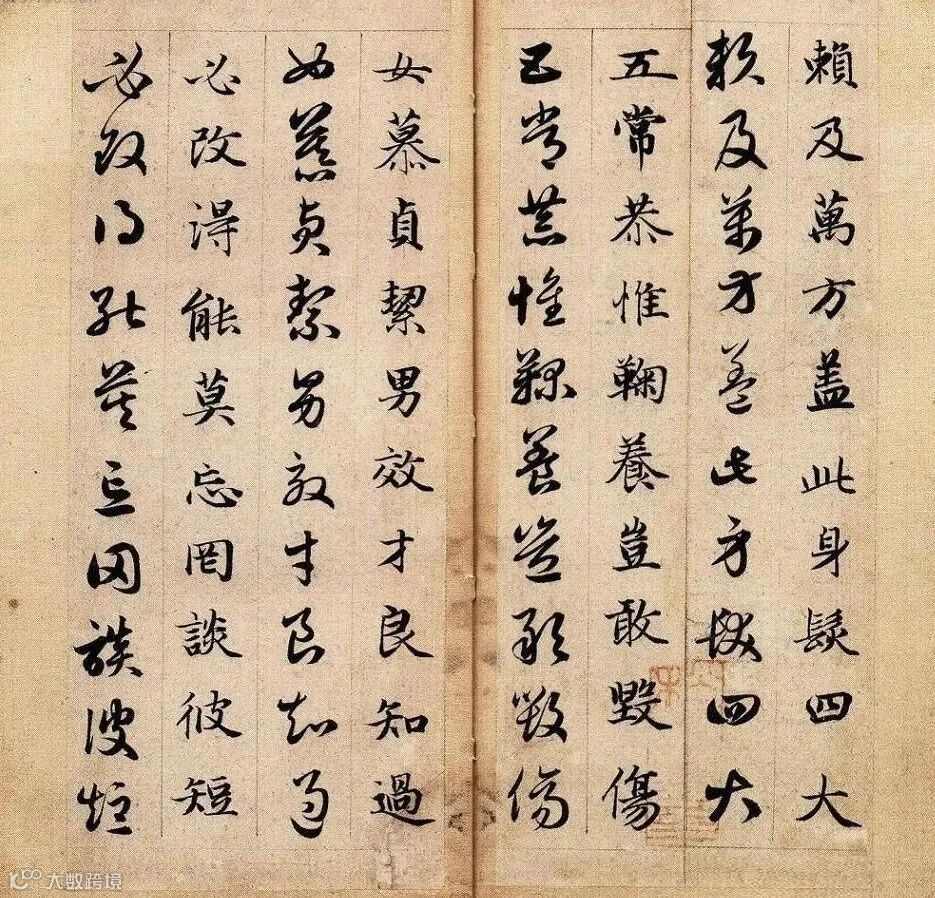 賴及萬方盖此身髮四大
賴及萬方盖此身髮四大
五常恭惟鞠養豈敢毀傷
五常恭惟鞠養豈敢毀傷
女慕貞絜男效才良知過
女慕貞絜男效才良知過
必改得能莫忘罔談彼短
必改得能莫忘罔談彼短
大数跨境